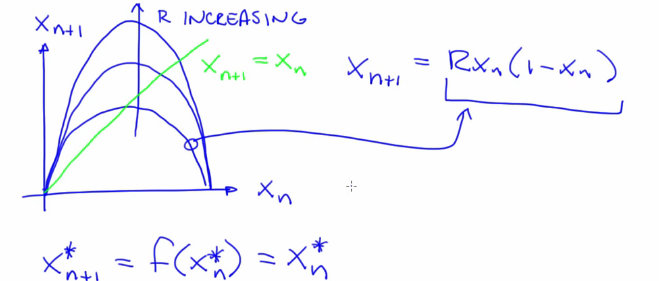 R INCREASING
x_{n+1}
x_{n+1} = x_n
x_{n+1} = Rx_n(1-x_n)
x_n
x*_{n+1} = f(x*_n) = x*_n